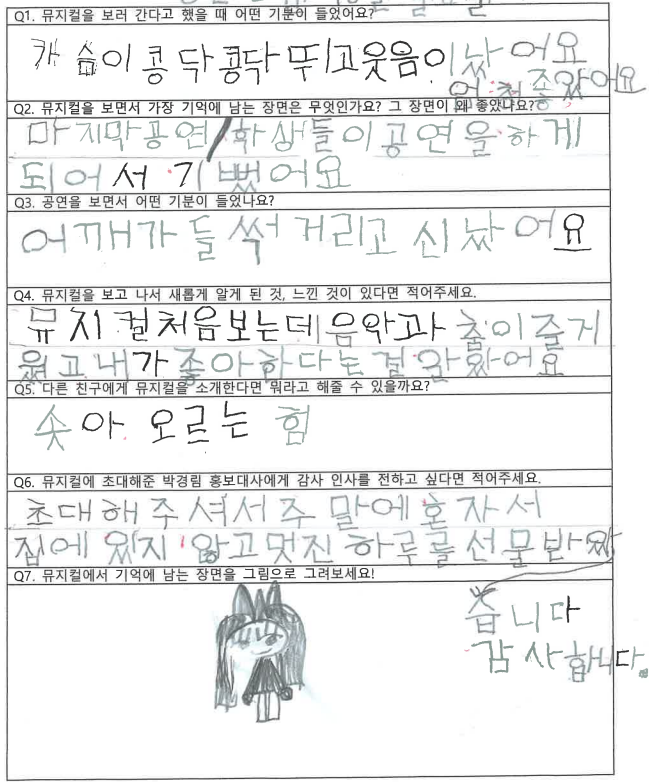 Q1. 뮤지컬을 보러 간다고 했을 때 어떤 기분이 들었어요?
카슴이 콩닥콩닥 뛰고웃음이났어요
엄청좋았어요
Q2. 뮤지컬을 보면서 가장 기억에 남는 장면은 무엇인가요? 그 장면이 왜 좋았나요?
마지막공연/화상들이공연을하게
되어서기뻤어요
Q3. 공연을 보면서 어떤 기분이 들었나요?
어깨가 들썩거리고 신났어요
Q4. 뮤지컬을 보고 나서 새롭게 알게 된 것, 느낀 것이 있다면 적어주세요.
뮤지컬처음보는데음악과 춤이즐거
웠고내가좋아하다는걸알았어요
Q5. 다른 친구에게 뮤지컬을 소개한다면 뭐라고 해줄 수 있을까요?
솟아 오르는 힘
Q6. 뮤지컬에 초대해준 박경림 홍보대사에게 감사 인사를 전하고 싶다면 적어주세요.
초대해주셔서주말에혼자서
집에있지않고멋진하루를선물받았
Q7. 뮤지컬에서 기억에 남는 장면을 그림으로 그려보세요!
습니다
감사합니다.